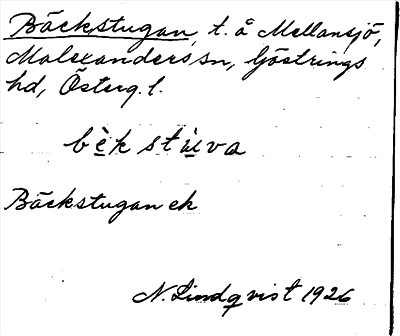 Bäckstugan, t. å Mellansjö,
Malexanders sn, Göstrings
hd, Österg. l.
bèkstùva
Bäckstugan ek
N. Lindqvist 1926